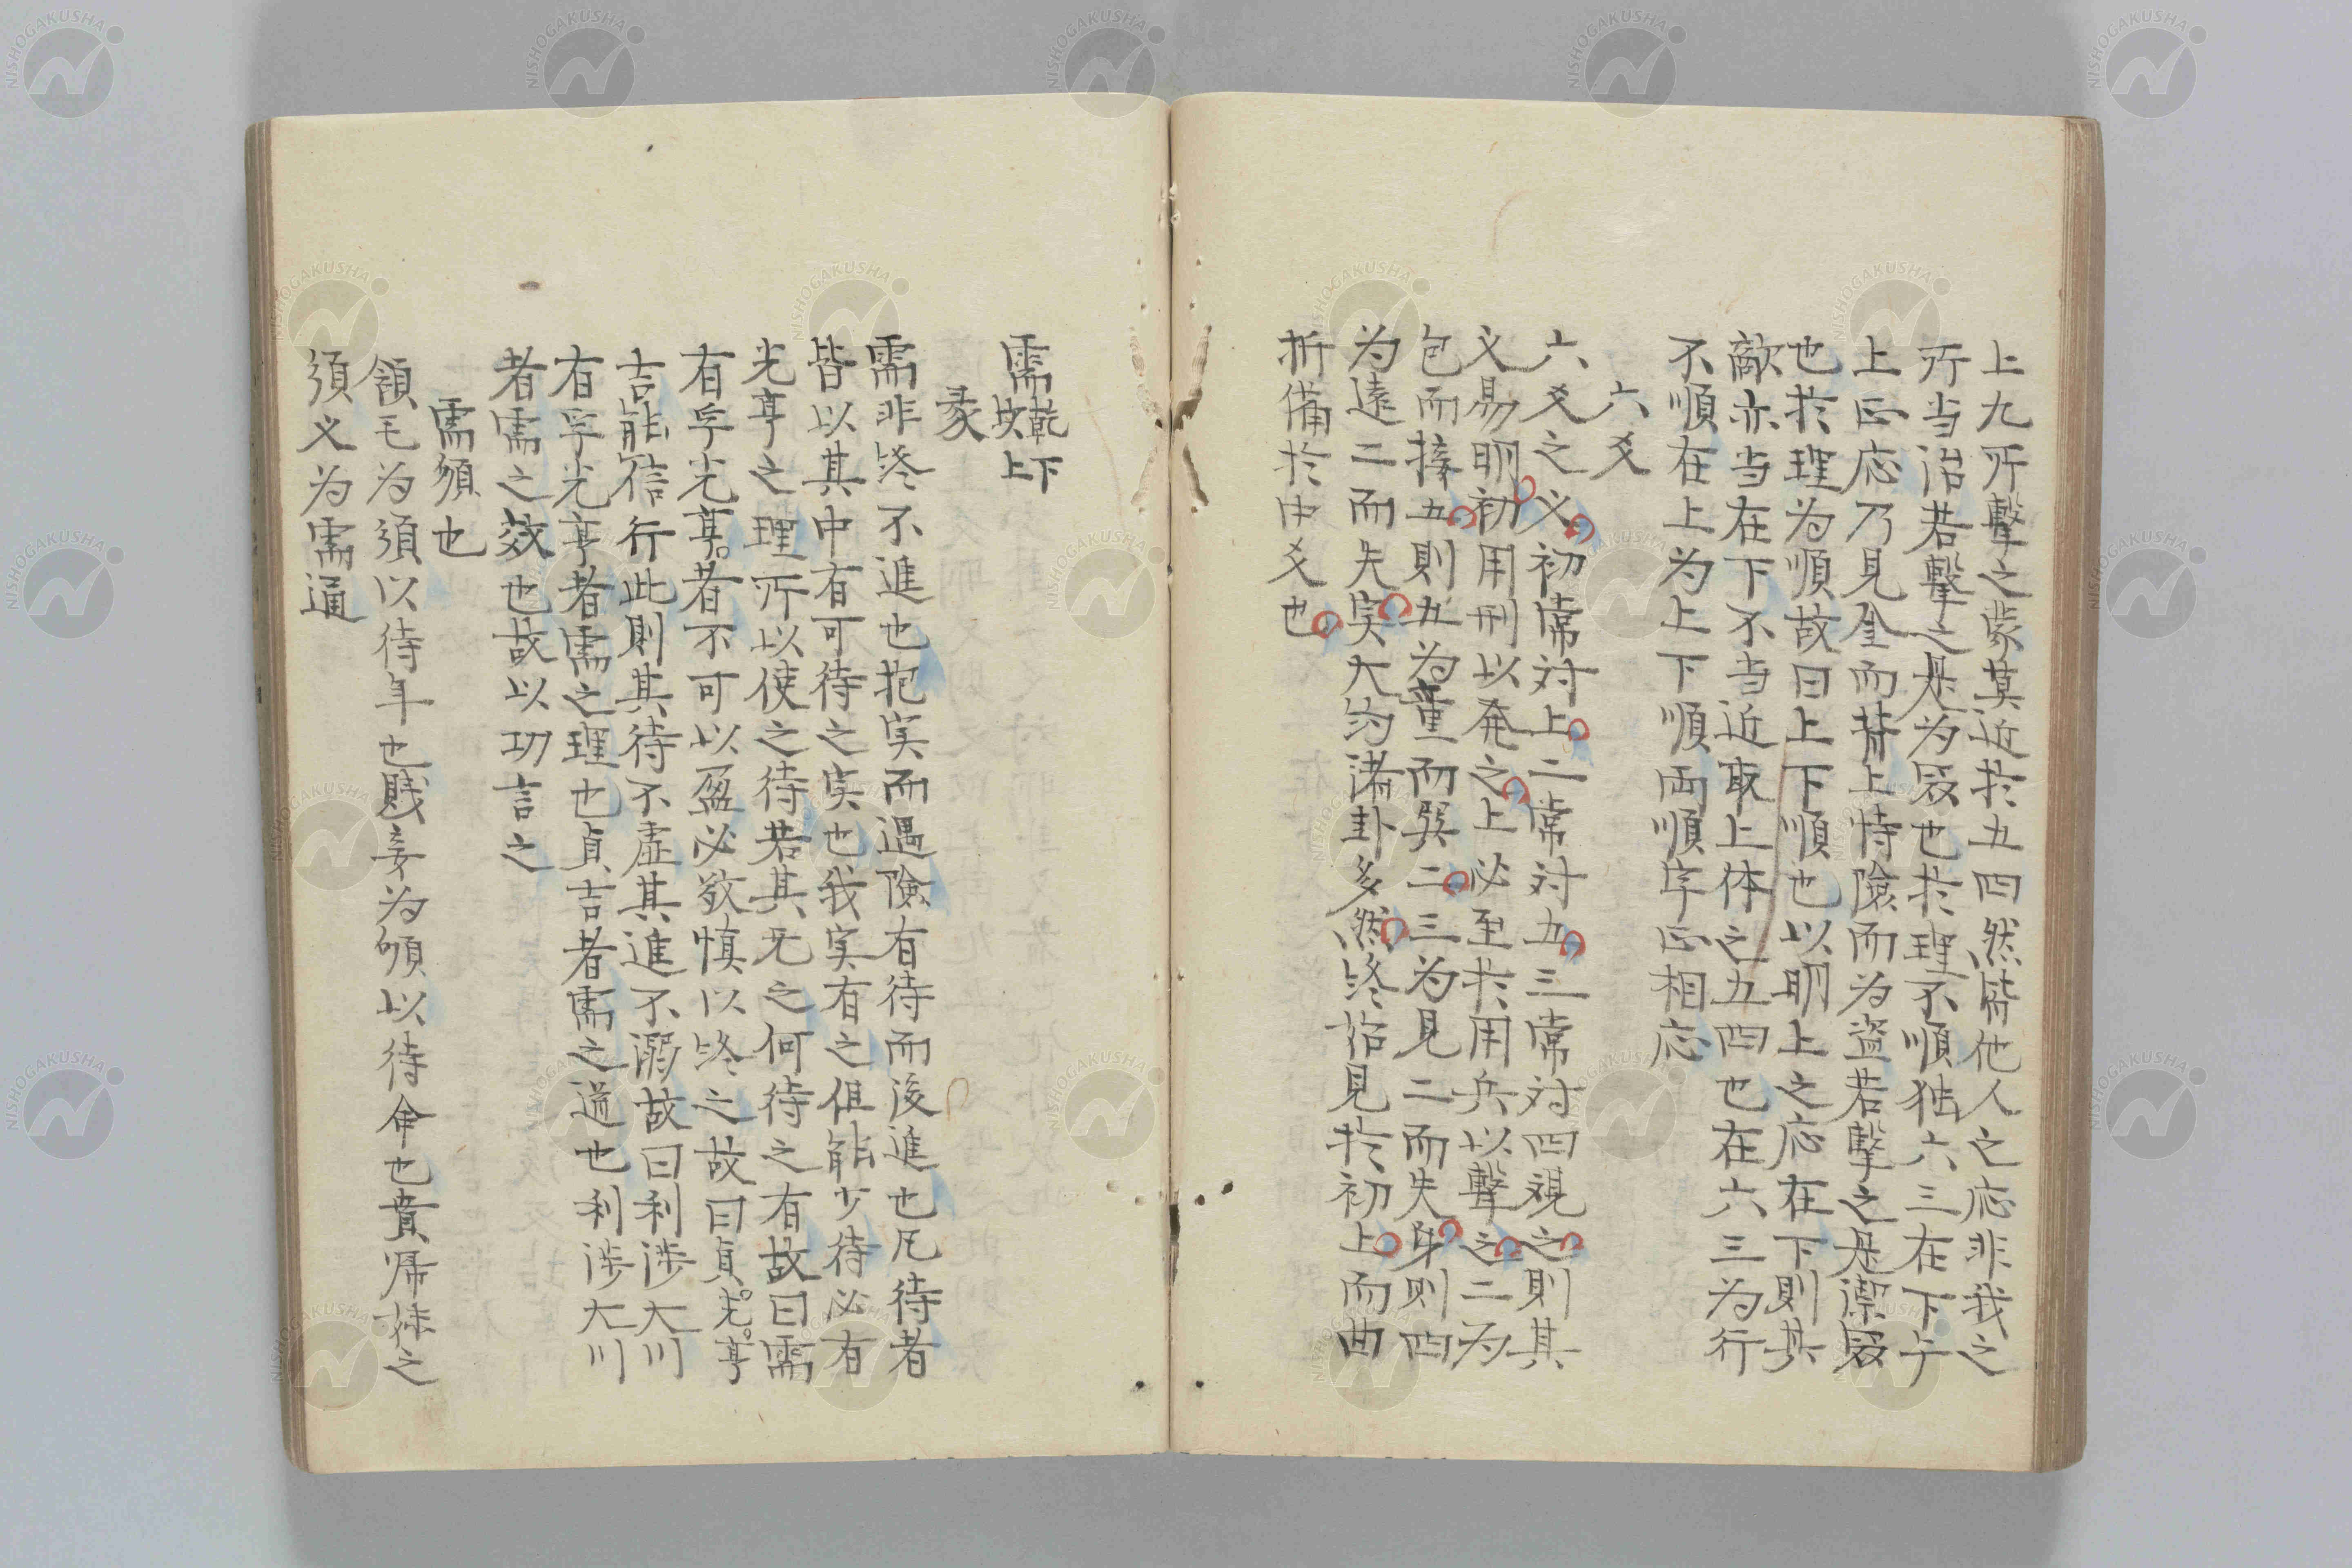 上九所擊之蒙莫近於五四然皆他人之応非我之
所当治若擊之是为寇也於理不順独六三在下与
上正応乃見金而昔上恃險而为盜若擊之是禦寇
也於理为順故曰上下順也以明上之応在下則其
敵亦当在下不当近取上体之五四也在六三为行
不順在上为上下順両順字正相応
六爻
六爻之义初常対上二常対五三常対四視之則其
义易明初用刑以発之上必至於用兵以擊之二为
包而接五則五为童而巽二三为見二而失身則四
为遠二而失宲大約諸卦多然終治見於初上而曲
折備於中爻也
需乾下坎上
彖
需非終不進也抱宲而遇險有待而後進也凡待者
皆以其中有可待之宲也我宲有之但能少待必有
光亨之理所以使之待若其无之何待之有故曰需
有孚光亨者不可以盈必敬慎以終之故曰貞光亨
吉能信行此則其待不虛其進不溺故曰利涉大川
有孚光亨者需之理也貞吉者需之道也利涉大川
者需之效也故以功言之
需須也
頜毛为須以待年也賤妾为頦以待命也賁帰妹之
須义为需通